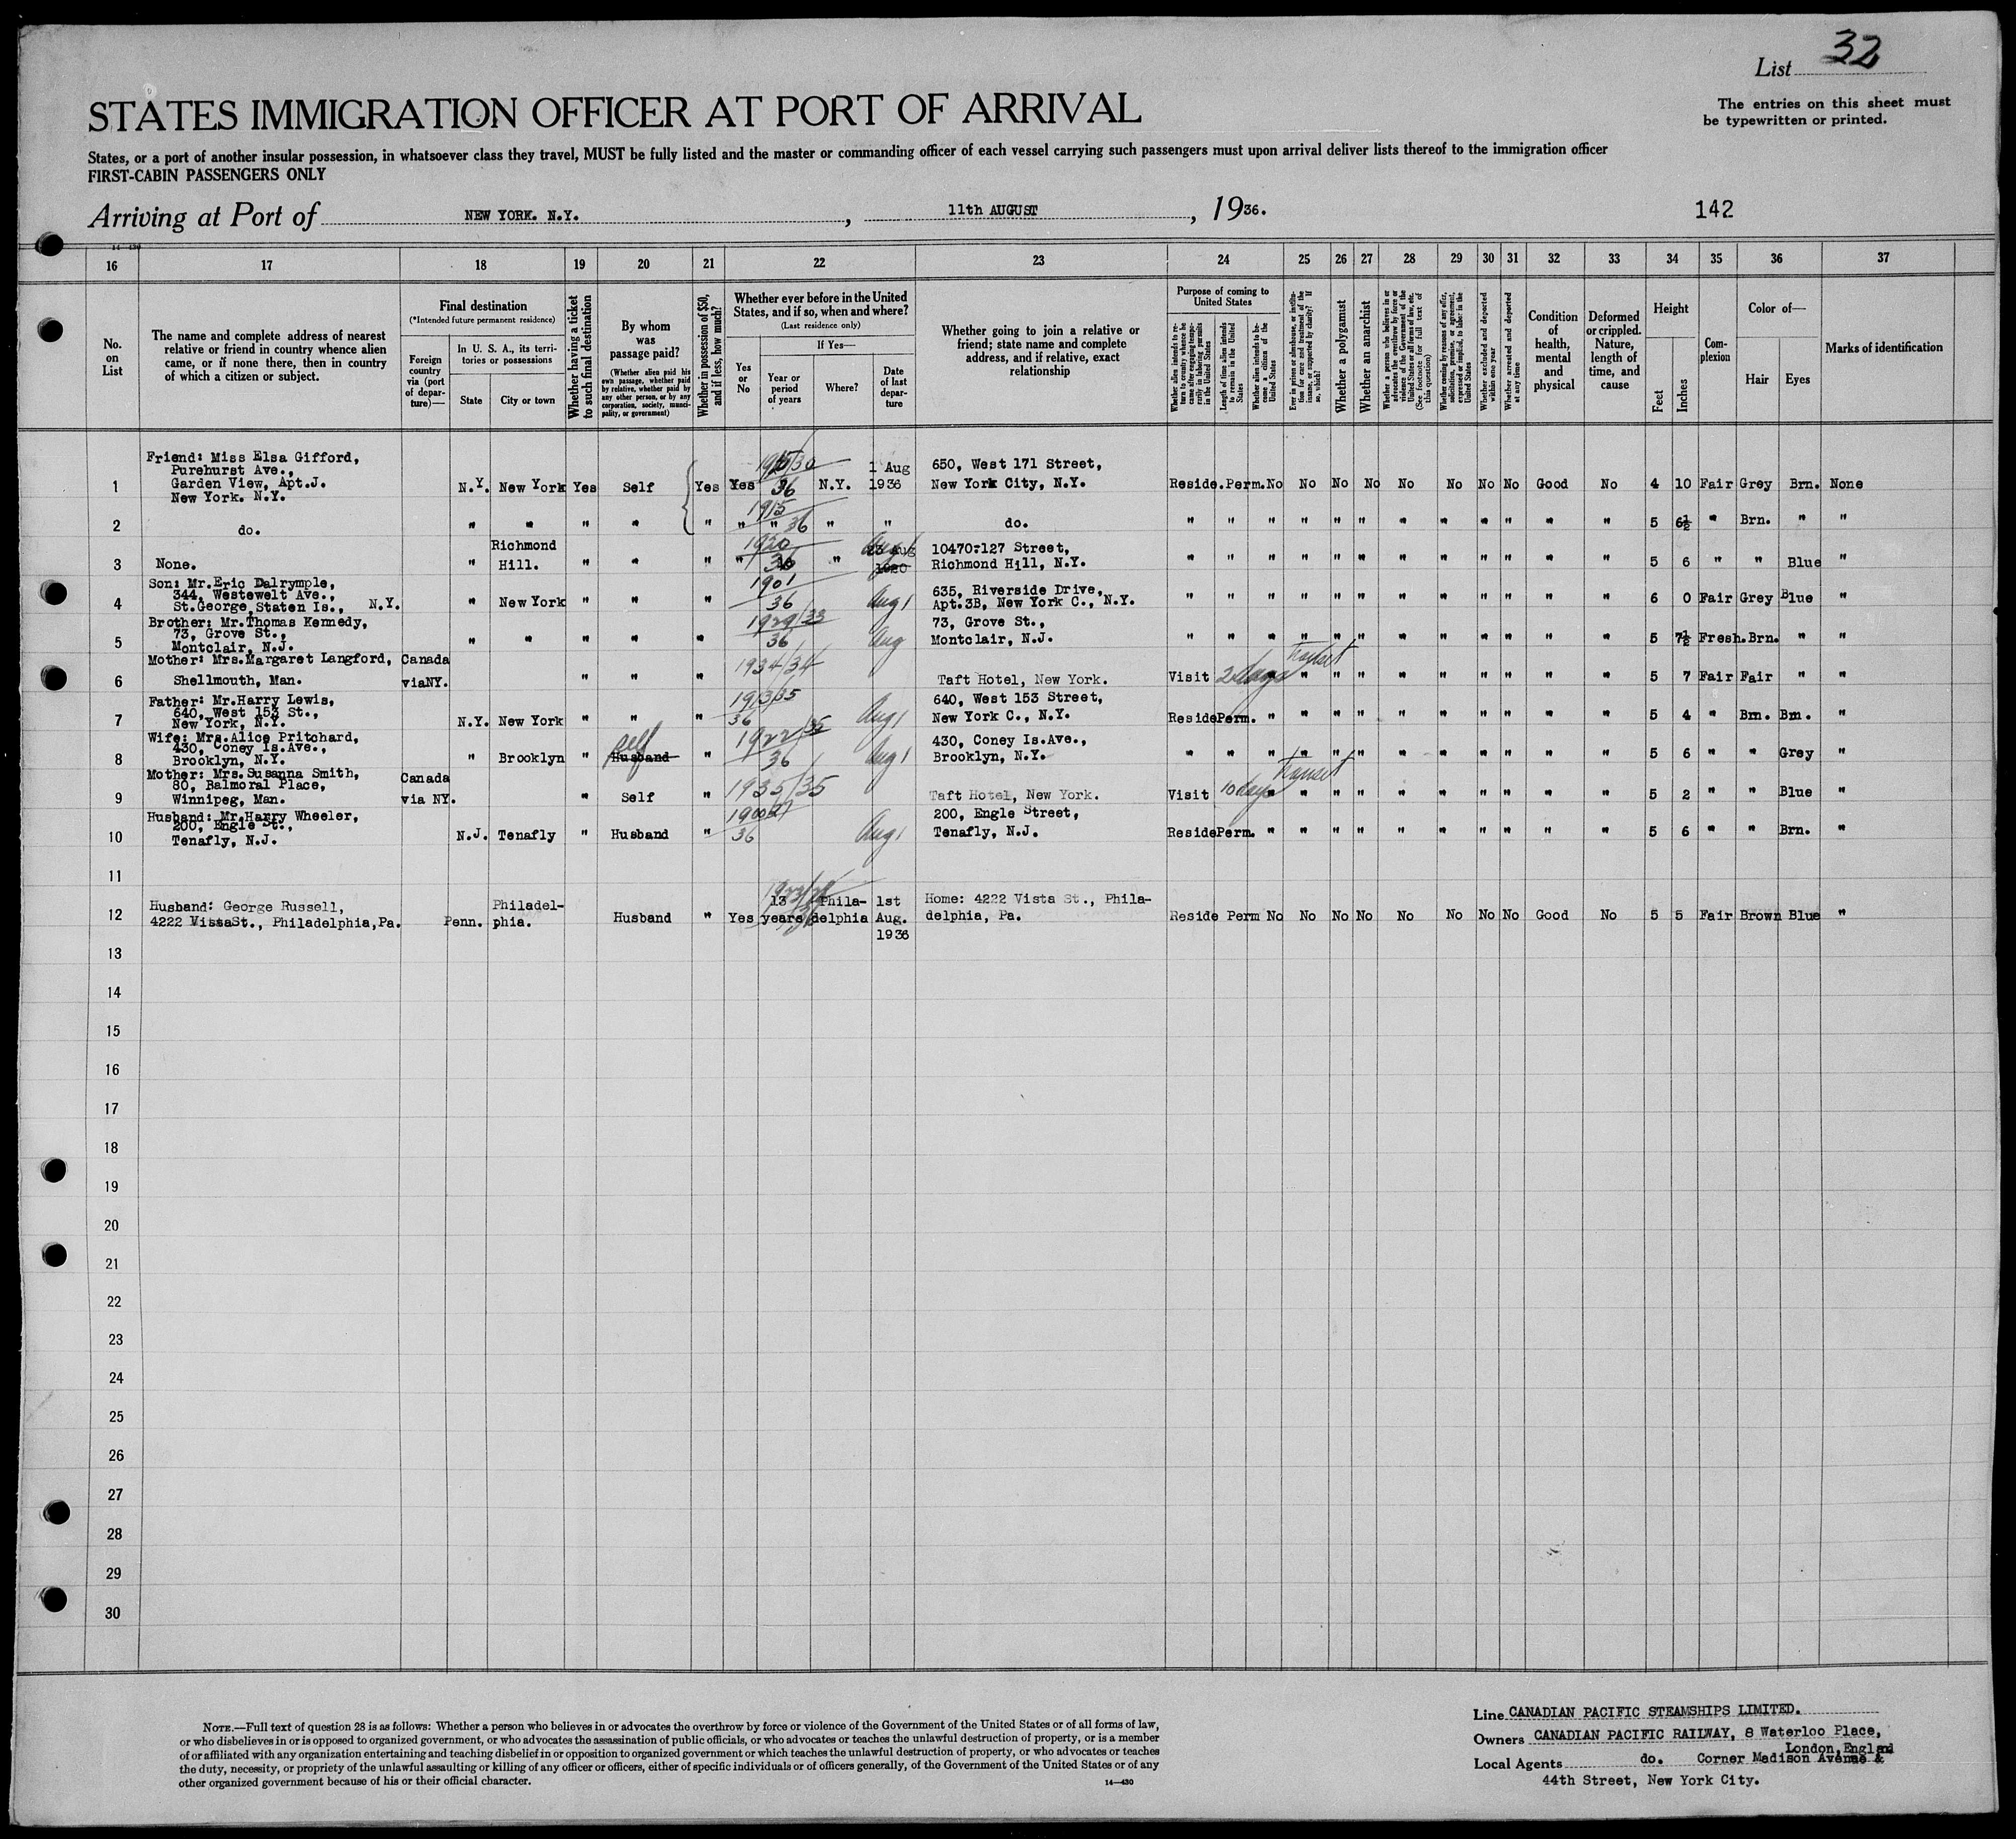 List 32
The entries on this sheet must
be typewritten or printed.
STATES IMMIGRATION OFFICER AT PORT OF ARRIVAL
States, or a port of another insular possession, in whatsoever class they travel, MUST be fully listed and the master or commanding officer of each vessel carrying such passengers must upon arrival deliver lists thereof to the immigration officer
FIRST-CABIN PASSENGERS ONLY
Arriving at Port of NEW YORK. N.Y. , 11th AUGUST , 1936. 142
16 17 18 19 20 21 22 23 24 25 26 27 28 29 30 31 32 33 34 35 36 37
No.
on
List
The name and complete address of nearest
relative or friend in country whence alien
came, or if none there, then in country
of which a citizen or subject.
Final destination
(*Intended future permanent residence)
Foreign
country
via (port
of depar-
ture)—
In U. S. A., its terri-
tories or possessions
State
City or town
Whether having a ticket
to such final destination
By whom
was
passage paid?
(Whether alien paid his
own passage, whether paid
by relative, whether paid by
any other person, or by any
corporation, society, munici-
pality, or government)
Whether in possession of $50,
and if less, how much?
Whether ever before in the United
States, and if so, when and where?
(Last residence only)
Yes
or
No
If Yes—
Year or
period
of years
Where?
Date
of last
depar-
ture
Whether going to join a relative or
friend; state name and complete
address, and if relative, exact
relationship
Purpose of coming to
United States
Whether alien intends to re-
turn to country whence he
came after engaging tempo-
rarily in laboring pursuits
in the United States
Length of time alien intends
to remain in the United
States
Whether alien intends to be-
come a citizen of the
United States
Ever in prison or almshouse, or institu-
tion for care and treatment of the
insane, or supported by charity? If
so, which?
Whether a polygamist
Whether an anarchist
Whether a person who believes in or
advocates the overthrow by force or
violence of the Government of the
United States or all forms of law, etc.
(See footnote for full text of
this question)
Whether coming by reason of any offer,
solicitation, promise, or agreement,
expressed or implied, to labor in the
United States
Whether excluded and deported
within one year
Whether arrested and deported
at any time
Condition
of
health,
mental
and
physical
Deformed
or crippled.
Nature,
length of
time, and
cause
Height
Feet
Inches
Com-
plexion
Color of—
Hair
Eyes
Marks of identification
Friend: Miss Elsa Gifford,
Purehurst Ave.,
Garden View, Apt.J.
New York. N.Y.
1 N.Y. New York Yes Self Yes Yes 36 N.Y. 1 Aug 1936
650, West 171 Street,
New York City, N.Y.
Reside. Perm. No No No No No No No No Good No 4 10 Fair Grey Brn. None
2 do. " " " " " " 1915 " 36 " " do. " " " " " " " " " " " " 5 6½ " Brn. " "
3 None. " Richmond
Hill. " " " " 1920 36 " 10470-127 Street,
Richmond Hill, N.Y. " " " " " " " " " " " " 5 6 " " Blue "
Son: Mr.Eric Dalrymple,
344, Westewelt Ave.,
4 St.George, Staten Is., N.Y. " New York " " " 1901 36 Aug 1
635, Riverside Drive,
Apt.3B, New York C., N.Y. " " " " " " " " " " " " 6 0 Fair Grey Blue "
Brother: Mr.Thomas Kennedy,
73, Grove St.,
5 Montclair, N.J. " " " " " 1929/33 36 Aug
73, Grove St.,
Montclair, N.J. " " " " " " " " " " " " 5 7½ Fresh. Brn. " "
Mother: Mrs.Margaret Langford,
6 Shellmouth, Man. Canada
viaNY. " " " 1934/34 Taft Hotel, New York. Visit 2 days transit " " " " " " " " " 5 7 Fair Fair " "
Father: Mr.Harry Lewis,
640, West 153 St.,
7 New York, N.Y. N.Y. New York " " " 1913/35 36 Aug 1
640, West 153 Street,
New York C., N.Y. Reside Perm. " " " " " " " " " " 5 4 " Brn. Brn. "
Wife: Mrs.Alice Pritchard,
430, Coney Is.Ave.,
8 Brooklyn, N.Y. " Brooklyn " self Husband " 1922/35 36 Aug 1
430, Coney Is.Ave.,
Brooklyn, N.Y. " " " " " " " " " " " " 5 6 " " Grey "
Mother: Mrs.Susanna Smith,
80, Balmoral Place,
9 Winnipeg, Man. Canada
via NY. " Self " 1935/35 Taft Hotel, New York. Visit 10 days transit " " " " " " " " " 5 2 " " Blue "
Husband: Mr.Harry Wheeler,
200, Engle St.,
10 Tenafly, N.J. N.J. Tenafly " Husband " 36 Aug 1
200, Engle Street,
Tenafly, N.J. Reside Perm. " " " " " " " " " " 5 6 " " Brn. "
11
Husband: George Russell,
12 4222 VistaSt., Philadelphia,Pa. Penn. Philadel-
phia. Husband " Yes 13
years Phila-
delphia 1st
Aug.
1936
Home: 4222 Vista St., Phila-
delphia, Pa. Reside Perm No No No No No No No No Good No 5 5 Fair Brown Blue "
13
14
15
16
17
18
19
20
21
22
23
24
25
26
27
28
29
30
NOTE.—Full text of question 28 is as follows: Whether a person who believes in or advocates the overthrow by force or violence of the Government of the United States or of all forms of law,
or who disbelieves in or is opposed to organized government, or who advocates the assassination of public officials, or who advocates or teaches the unlawful destruction of property, or is a member
of or affiliated with any organization entertaining and teaching disbelief in or opposition to organized government or which teaches the unlawful destruction of property, or who advocates or teaches
the duty, necessity, or propriety of the unlawful assaulting or killing of any officer or officers, either of specific individuals or of officers generally, of the Government of the United States or of any
other organized government because of his or their official character.
14—430
Line CANADIAN PACIFIC STEAMSHIPS LIMITED.
Owners CANADIAN PACIFIC RAILWAY, 8 Waterloo Place,
London, England
Local Agents do. Corner Madison Avenue &
44th Street, New York City.